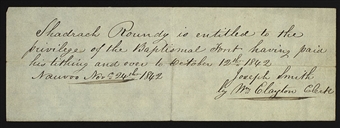 Shadrach Roundy is entitled to the
privilege of the Baptismal Font having paid
his tithing and over to October 12th 1842
Nauvoo Nov. 24th 1842 Joseph Smith
by Wm Clayton Clerk